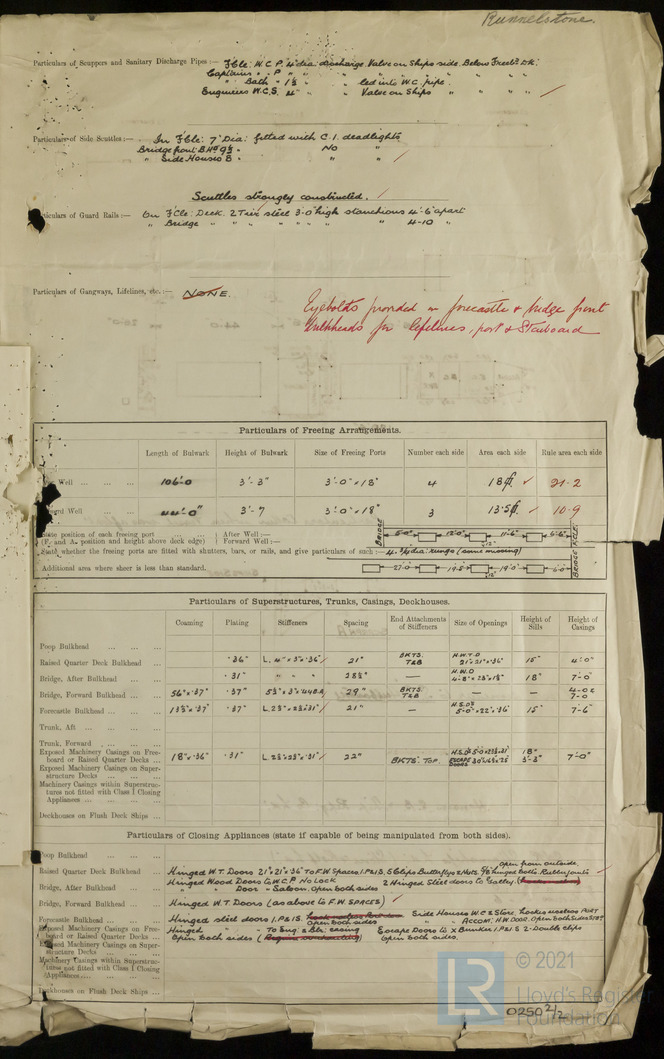 Runnelstone.
Particulars of Scuppers and Sanitary Discharge Pipes :— F'Cle: W.C. P. 4" dia: discharge Valve on Ships side. Below Freeb'd DK.
Captains " P " " " " " " "
" Bath " 1½ " led into W.C. pipe.
Engineers W.C. S. 4" " Valve on Ships " " "
Particulars of Side Scuttles :— In F'Cle: 7" Dia: fitted with C.I. deadlights
Bridge front B.Hd 9½ " NO "
" Side Houses 8 " " "
Scuttles strongly constructed.
Particulars of Guard Rails :— On F'Cle: Deck. 2 Tier steel 3'-0" high stanchions 4'-6" apart
" Bridge " " " " " " 4-10 "
Particulars of Gangways, Lifelines, etc. :— NONE.
Eyebolts provided on forecastle & bridge front
bulkheads for lifelines, port & Starboard
Particulars of Freeing Arrangements.
Length of Bulwark Height of Bulwark Size of Freeing Ports Number each side Area each side Rule area each side
Well ... ... ... 106'-0 3'-3" 3'-0" x 18" 4 18 ft 21·2
Well ... ... 44'-0" 3'-7 3'-0" x 18" 3 13·5 ft 10·9
State position of each freeing port ... ... After Well :—
(F. and A. position and height above deck edge) Forward Well :—
BRIDGE 12'0" 11'-6" 6'-6" F'CLE.
State whether the freeing ports are fitted with shutters, bars, or rails, and give particulars of such :— (some missing)
Additional area where sheer is less than standard. BRIDGE 19'0" 6'-0" F'CLE.
Particulars of Superstructures, Trunks, Casings, Deckhouses.
Coaming Plating Stiffeners Spacing End Attachments of Stiffeners Size of Openings Height of Sills Height of Casings
Poop Bulkhead ... ... ...
Raised Quarter Deck Bulkhead ... ·36" L. 4" x 3" x ·36" 21" BKTS. T&B H.W.T.D 21" x 21" x ·36" 15" 4'-0"
Bridge, After Bulkhead ... ... ·31" " " " 28½" — H.W.D 18" 7-0"
Bridge, Forward Bulkhead ... ... 56" x ·37" ·37" 29" BKTS. T&B — — 7-0"
Forecastle Bulkhead ... ... ·37" 21" — H.S.D's 5'-0" x 22" x ·36" 15" 7-6"
Trunk, Aft ... ... ...
Trunk, Forward ... ... ...
Exposed Machinery Casings on Freeboard or Raised Quarter Decks ... 18" x ·36" ·31" 22" BKTS. TOP. ESCAPE DOORS 18" 3'-3" 7'-0"
Exposed Machinery Casings on Superstructure Decks ... ... ...
Machinery Casings within Superstructures not fitted with Class I Closing Appliances ... ... ...
Deckhouses on Flush Deck Ships ...
Particulars of Closing Appliances (state if capable of being manipulated from both sides).
Poop Bulkhead ... ... ...
open from outside.
Raised Quarter Deck Bulkhead ... Hinged W.T. Doors 21" x 21" x ·36" To F.W Spaces 1. P & 1 S. 5 Clips Butterflys & Nuts. hinged bolts Rubber joints
Hinged Wood Doors to W.C. P No Lock 2 Hinged Steel doors to Galley.
Bridge, After Bulkhead ... ... " Door - Saloon. Open both sides
Bridge, Forward Bulkhead ... ... Hinged W.T. Doors (as above to F.W SPACES)
Forecastle Bulkhead ... ... Hinged steel doors 1. P & 1 S. open both sides Side Houses W.C & Store. hooks useless PORT
Exposed Machinery Casings on Freeboard or Raised Quarter Decks ... Hinged " - To Eng. & Blr. casing " ACCOM: H.W DOOR. Open Both Sides STBD
open both sides Escape Doors to X Bunker 1. P & 1 S 2-Double clips
open both sides.
Exposed Machinery Casings on Superstructure Decks ... ...
Machinery Casings within Superstructures not fitted with Class I Closing Appliances ... ...
Deckhouses on Flush Deck Ships ...
LR © 2021
Lloyd's Register
Foundation
0250 2/2